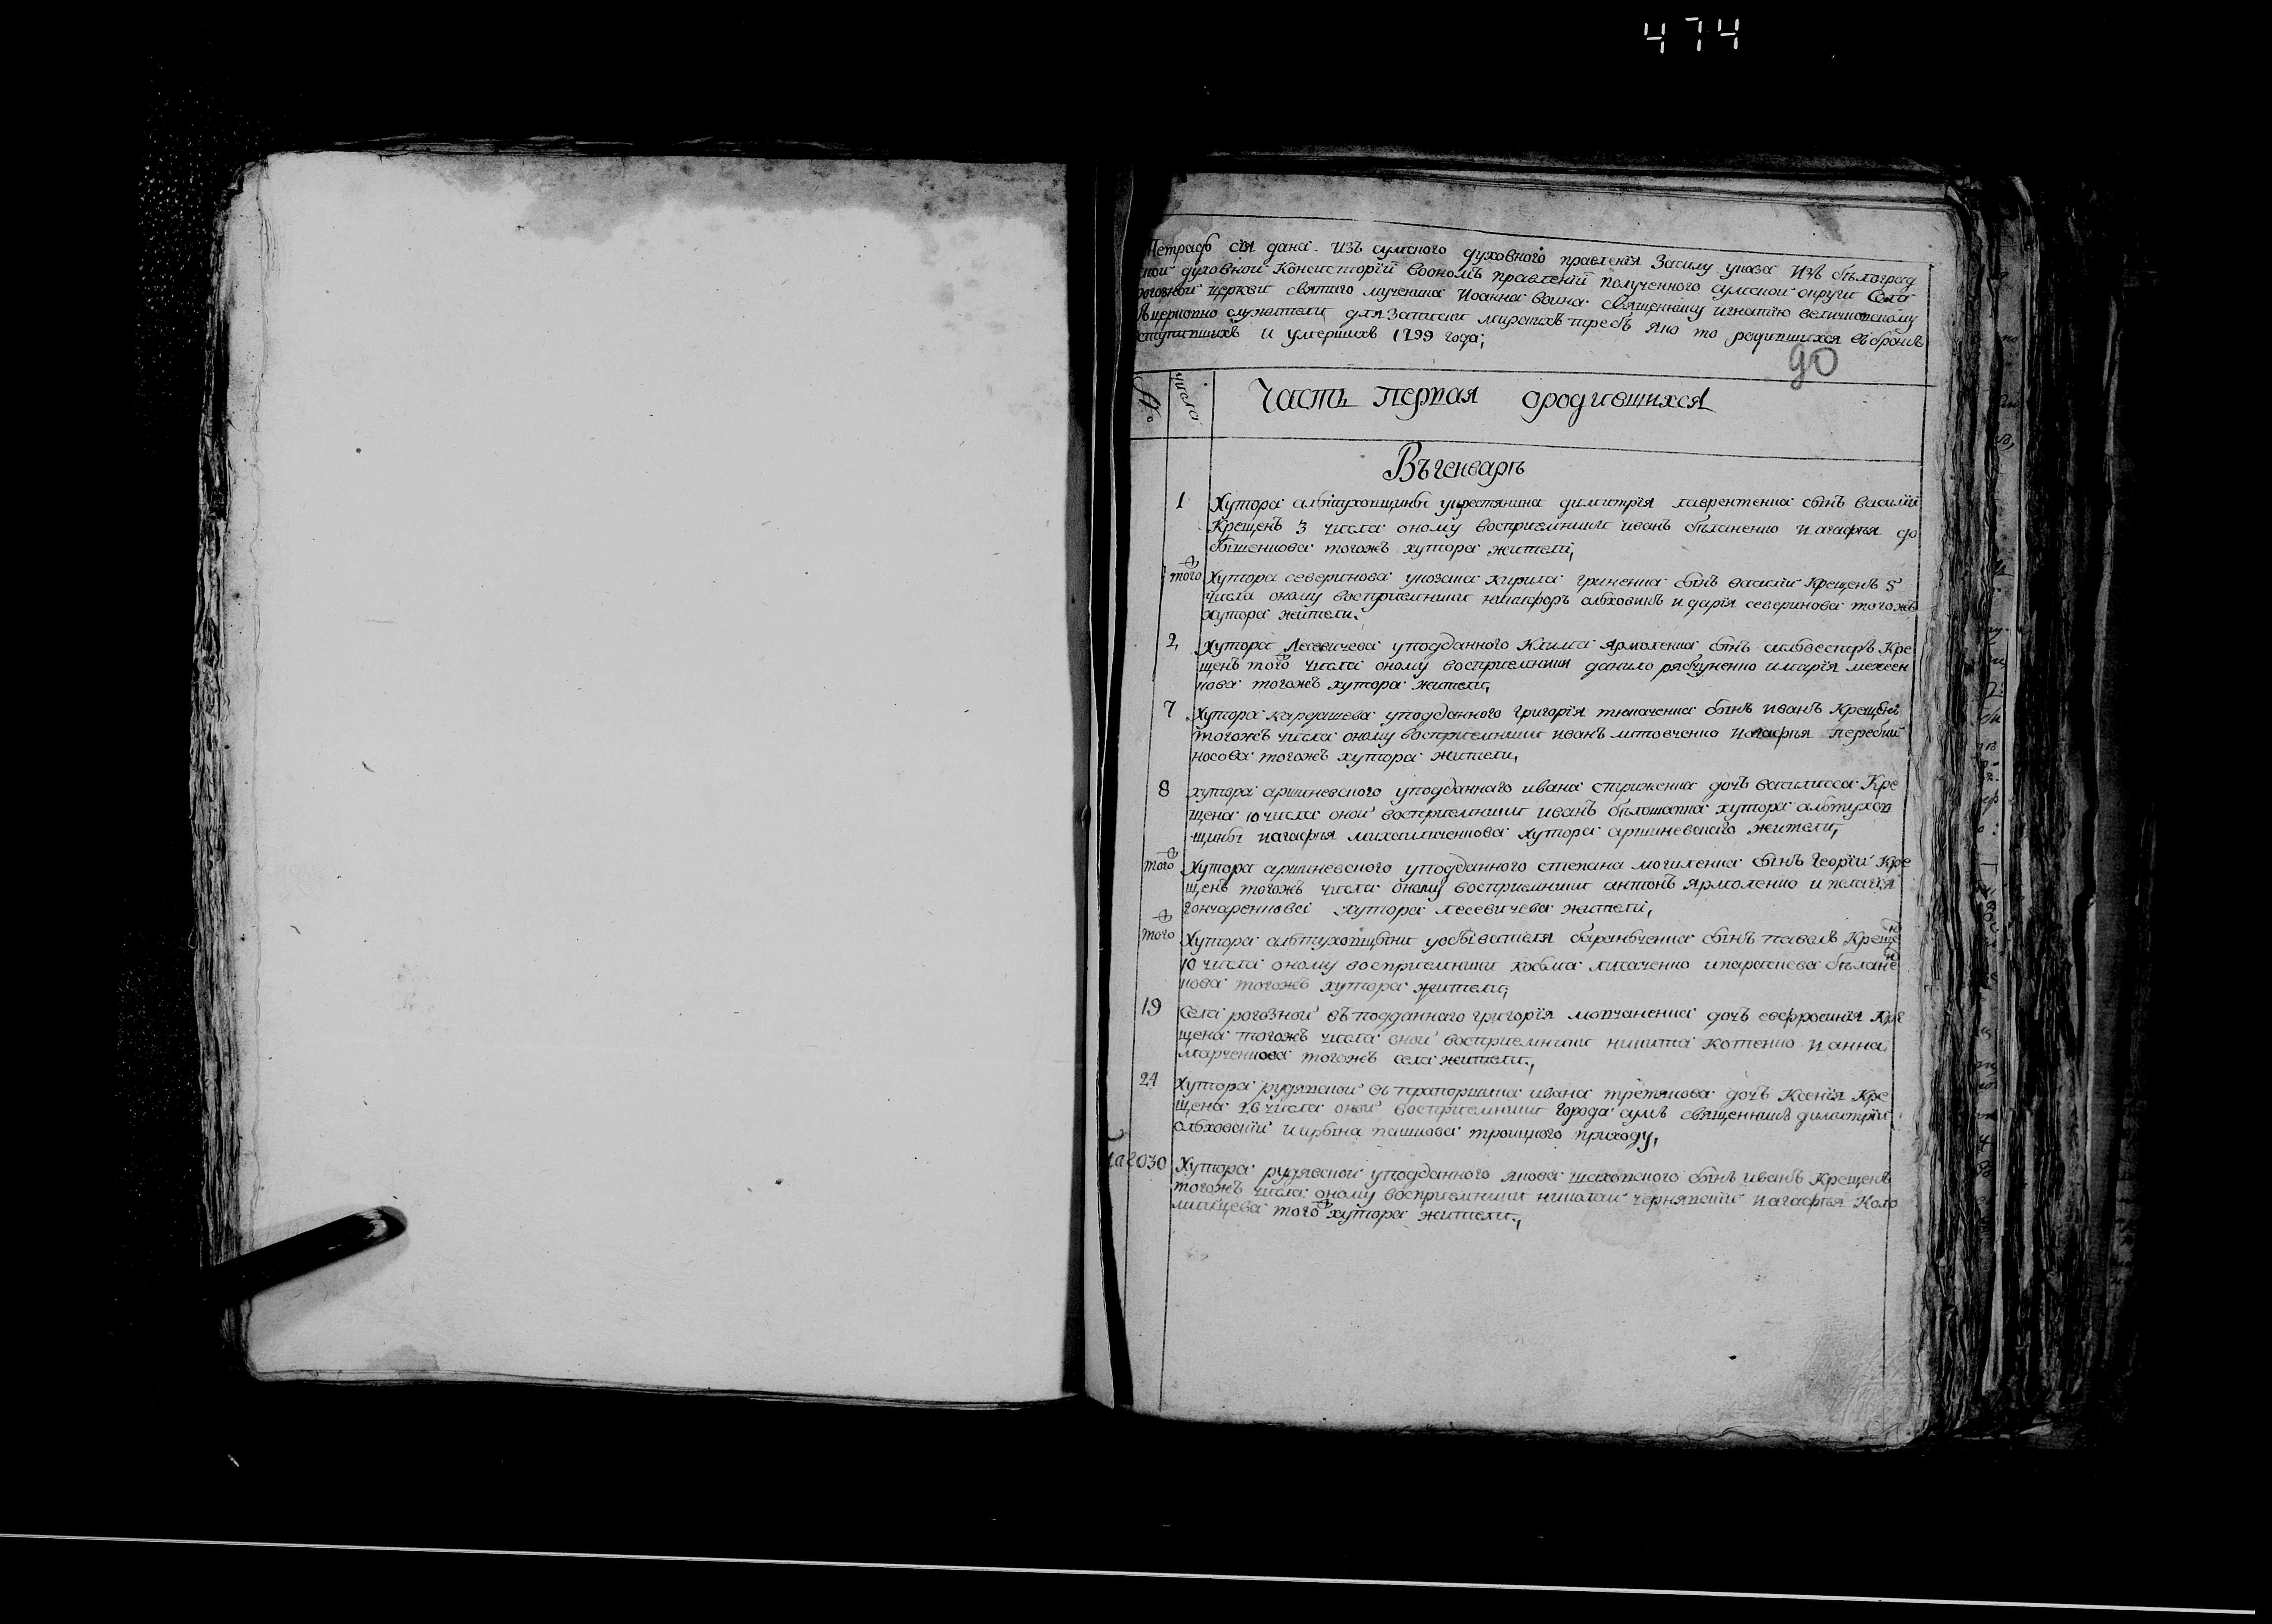 474
Тетрадь сїя дана изъ сумского духовного правленїя Засилу указа Изъ бѣлоград
ской духовной Консисторїи воономъ правленїи полученного сумской округи Села
рогозной церкви святаго мученика Иоанна воина священнику игнатїю величковскому
съ церковно служители для Записки мирскихъ требъ яко то родившихся въбракъ
вступившихъ и умершихъ 1799 года;
90
№
числа
Часть первая ородившихся
Въ генварѣ
1 Хутора алътуховщины укрестянина димитрїя лаврентенка сынъ василїй
Крещенъ 3 числа оному восприемники иванъ бѣланенко и агафья
тогожъ хутора жители,
того Хутора северинова укозака кирила гриненка сынъ василїй Крещенъ 5
числа оному восприемники никифоръ олховикъ и дарїя северинова тогожъ
хутора жители.
2 Хутора Лесевичева уподданного Клима Ярмоленка сынъ силвестръ Кре
щенъ того числа оному восприемники данило рябчуненко имарїя
тогожъ хутора жители,
7 Хутора кардашева уподданного григорїя ткаченка сынъ иванъ Крещенъ
тогожъ числа оному восприемники иванъ литовченко и агафья перебий
носова тогожъ хутора жители,
8 хутора аршиневского уподданнаго ивана стриженка дочъ василисса Кре
щена 10 числа оной восприемники иванъ бѣлошапка хутора алътухов
щины иагафья михаиличенкова хутора аршиневскаго жители,
того Хутора аршиневского уподданного степана могиленка сынъ георгїй Кре
щенъ тогожъ числа оному восприемники антонъ ярмоленко и пелагїя
гончаренкова хутора лесевичева жители,
того Хутора алтуховщыни уобывателя баранъченка сынъ павелъ Креще
10 числа оному восприемники козма лихаченко ипараскева бѣлане
кова тогожъ хутора жители,
19 Села рогозной въ подданнаго григорїя молчаненка дочъ евфросинїя Кре
щена тогожъ числа оной восприемники никита котенко и анна
марченкова тогожъ села жители.,
24 Хутора рудявской въ прапорщика ивана третякова дочъ Ксенїя Кре
щена 26 числа оной восприемники города сумъ священникъ димитрїй
олховскїй ипашкова троицкого приходу,
30 Хутора рудявской уподданного якова шаховского сынъ иванъ Крещенъ
тогожъ числа оному восприемники николай чернявскїй иагафья Коло
мийцева того хутора жители.,